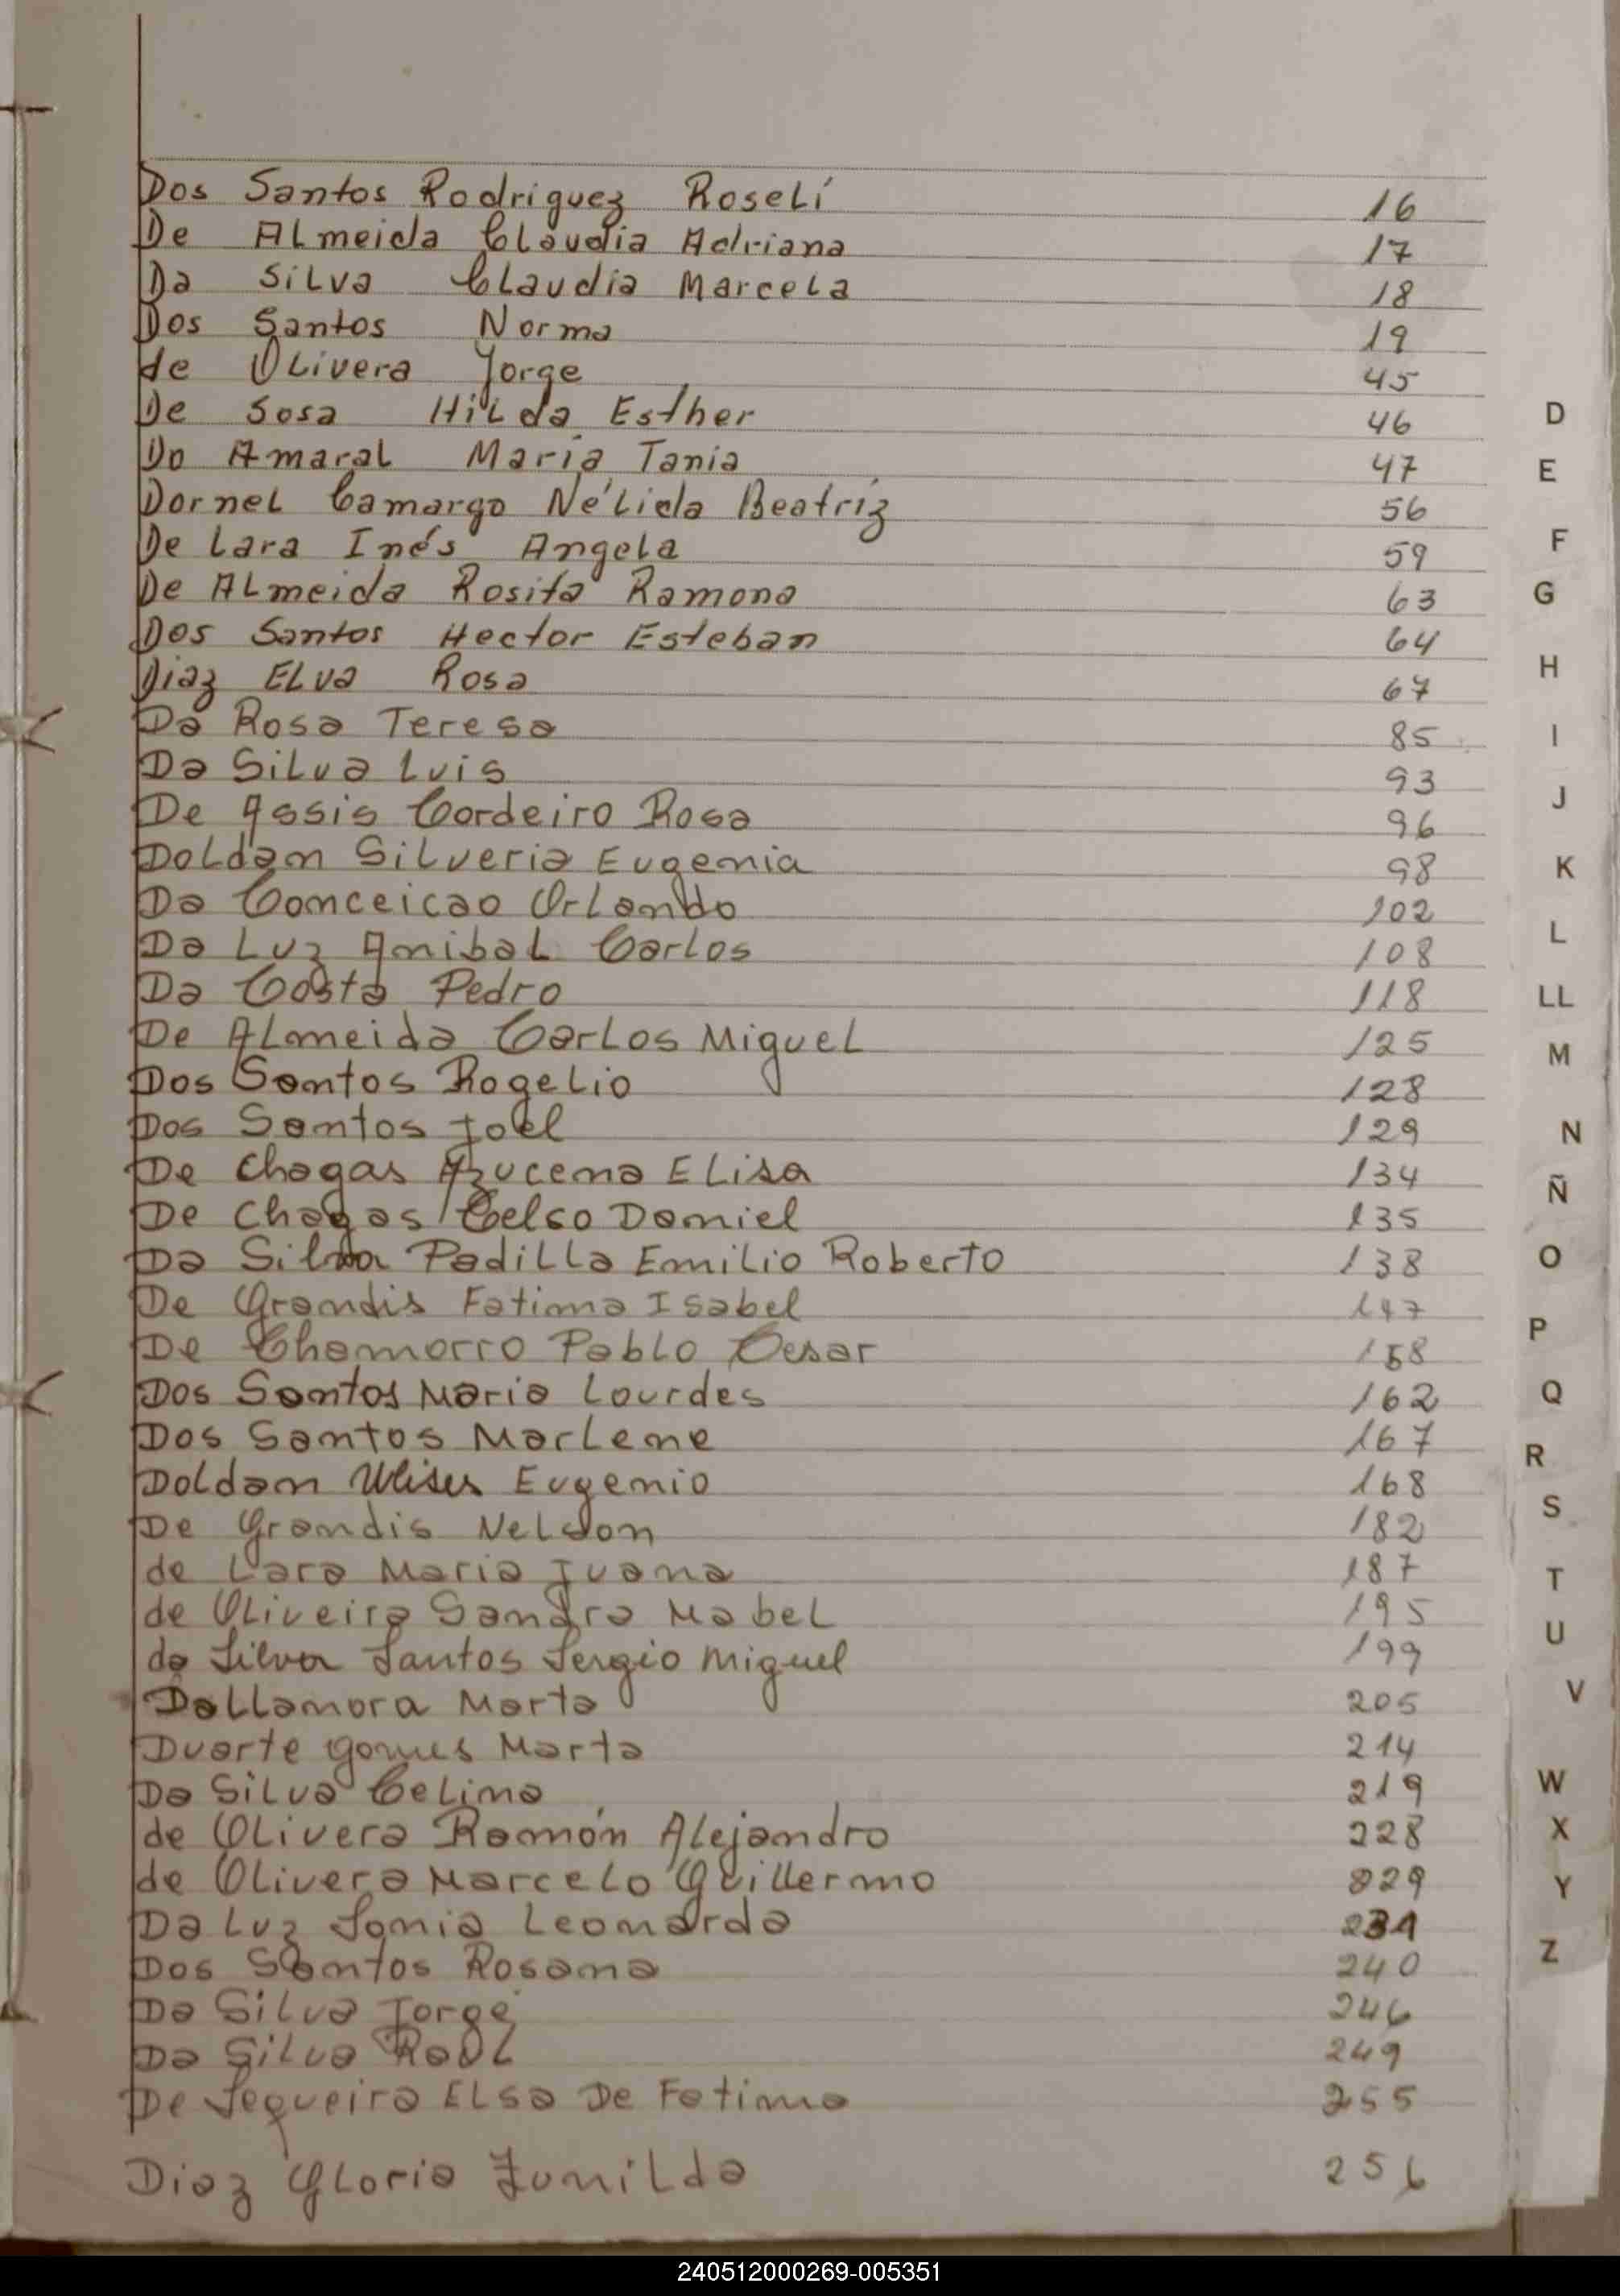 Dos Santos Rodriguez Roselí 16
De Almeida Claudia Adriana 17
Da Silva Claudia Marcela 18
Dos Santos Norma 19
de Olivera Jorge 45
De Sosa Hilda Esther 46
D
Do Amaral María Tania 47
E
Dornel Camargo Nélida Beatríz 56
De Lara Inés Angela 59
F
De Almeida Rosita Ramona 63
G
Dos Santos Hector Esteban 64
Diaz Elva Rosa 67
H
Da Rosa Teresa 85
I
Da Silva Luis 93
De Assis Cordeiro Rosa 96
J
Doldan Silveria Eugenia 98
K
Da Conceicao Orlando 102
Da Luz Anibal Carlos 108
L
Da Costa Pedro 118
LL
De Almeida Carlos Miguel 125
M
Dos Santos Rogelio 128
Dos Santos Joel 129
N
De Chagas Azucena Elisa 134
Ñ
De Chagas Celso Daniel 135
Da Silva Padilla Emilio Roberto 138
O
De Grandis Fatima Isabel 147
P
De Chamorro Pablo Cesar 158
Dos Santos Maria Lourdes 162
Q
Dos Santos Marlene 167
R
Doldan Ulises Eugenio 168
S
De Grandis Nelson 182
de Lara Maria Juana 187
T
de Oliveira Sandra Mabel 195
U
da Silva Santos Sergio Miguel 199
Dallamora Marta 205
V
Duarte Gomes Marta 214
Da Silva Celina 219
W
de Olivera Ramón Alejandro 228
X
de Olivera Marcelo Guillermo 229
Y
Da Luz Sonia Leonarda 231
Dos Santos Rosana 240
Z
Da Silva Jorge 246
Da Silva Raul 249
De Sequeira Elsa De Fatima 255
Diaz Gloria Zunilda 256
240512000269-005351